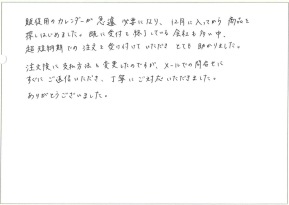 販促用のカレンダーが急遽必要になり、12月に入ってから商品を
探しはじめました。既に受付を終了している会社も多い中、
超短納期での注文を受け付けていただき とても助かりました。
注文後に支払方法を変更したのですが、メールでの問合せに
すぐにご返信いただき、丁寧にご対応いただきました。
ありがとうございました。